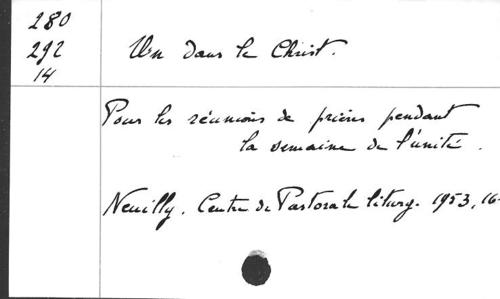 280
292
14
Un dans le Christ.
Pour les réunions de prières pendant
la semaine de l'unité.
Neuilly. Centre de Pastorale liturg. 1953, 16